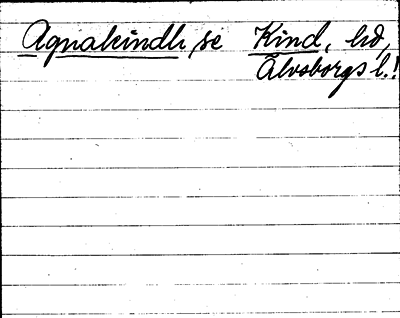 Agnakindh, se Kind, hd,
Älvsborgs l.!